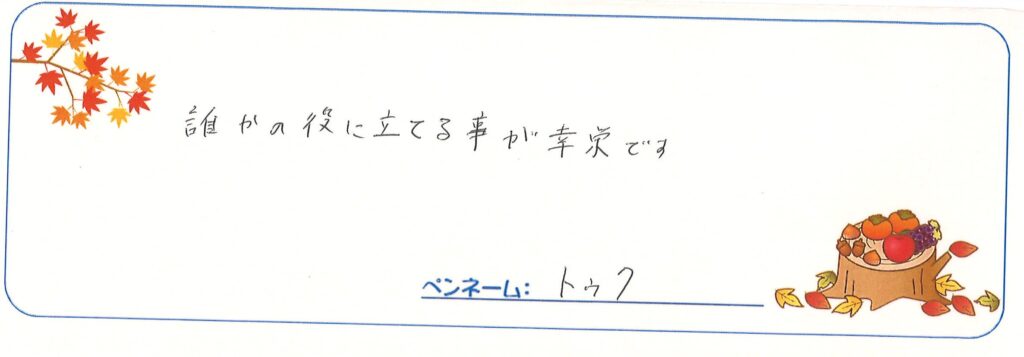 誰かの役に立てる事が幸栄です
ペンネーム: トゥク